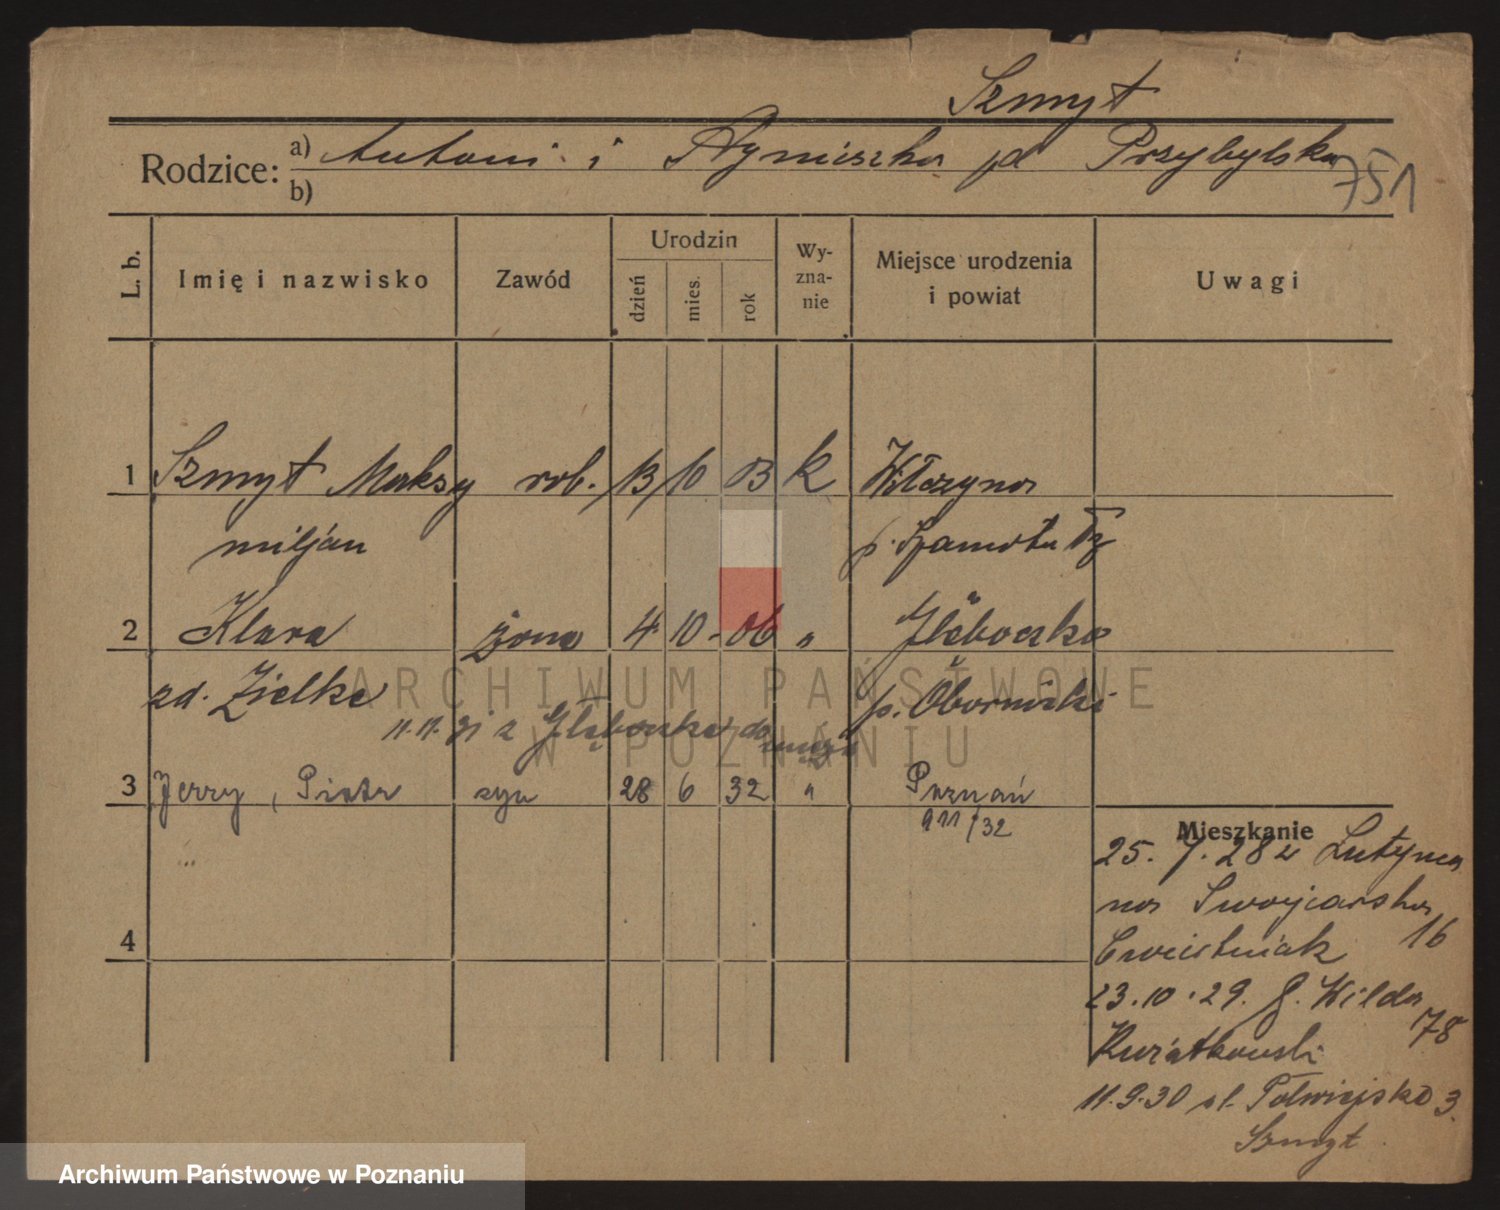 Szmyt
Rodzice: a) Antoni i Agnieszka zd Przybylska
b)
751
L. b. Imię i nazwisko Zawód Urodzin dzień mies. rok Wy-zna-nie Miejsce urodzenia i powiat Uwagi
1 Szmyt Maksy rob. 13 10 03 k Wilczyna
miljan p. Szamotuły
2 Klara żona 4 10 06 " Głęboczko
zd. Zielke p. Obornicki
11.11.31 z Głęboczka do męża
3 Jerzy, Piotr syn 28 6 32 " Poznań
9 11/32
Mieszkanie
25. 7. 28 z Lutynia
na Swojarska
Cwiertniak 16
4
23.10.29. G. Wilda
Kwiatkowski 78
11.9.30 ul. Półwiejska 3.
Szmyt
ARCHIWUM PAŃSTWOWE
W POZNANIU
Archiwum Państwowe w Poznaniu